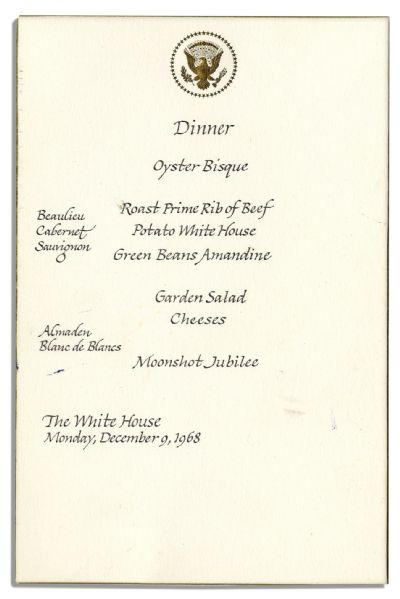 Dinner
Oyster Bisque
Beaulieu
Cabernet
Sauvignon
Roast Prime Rib of Beef
Potato White House
Green Beans Amandine
Garden Salad
Cheeses
Almaden
Blanc de Blancs
Moonshot Jubilee
The White House
Monday, December 9, 1968